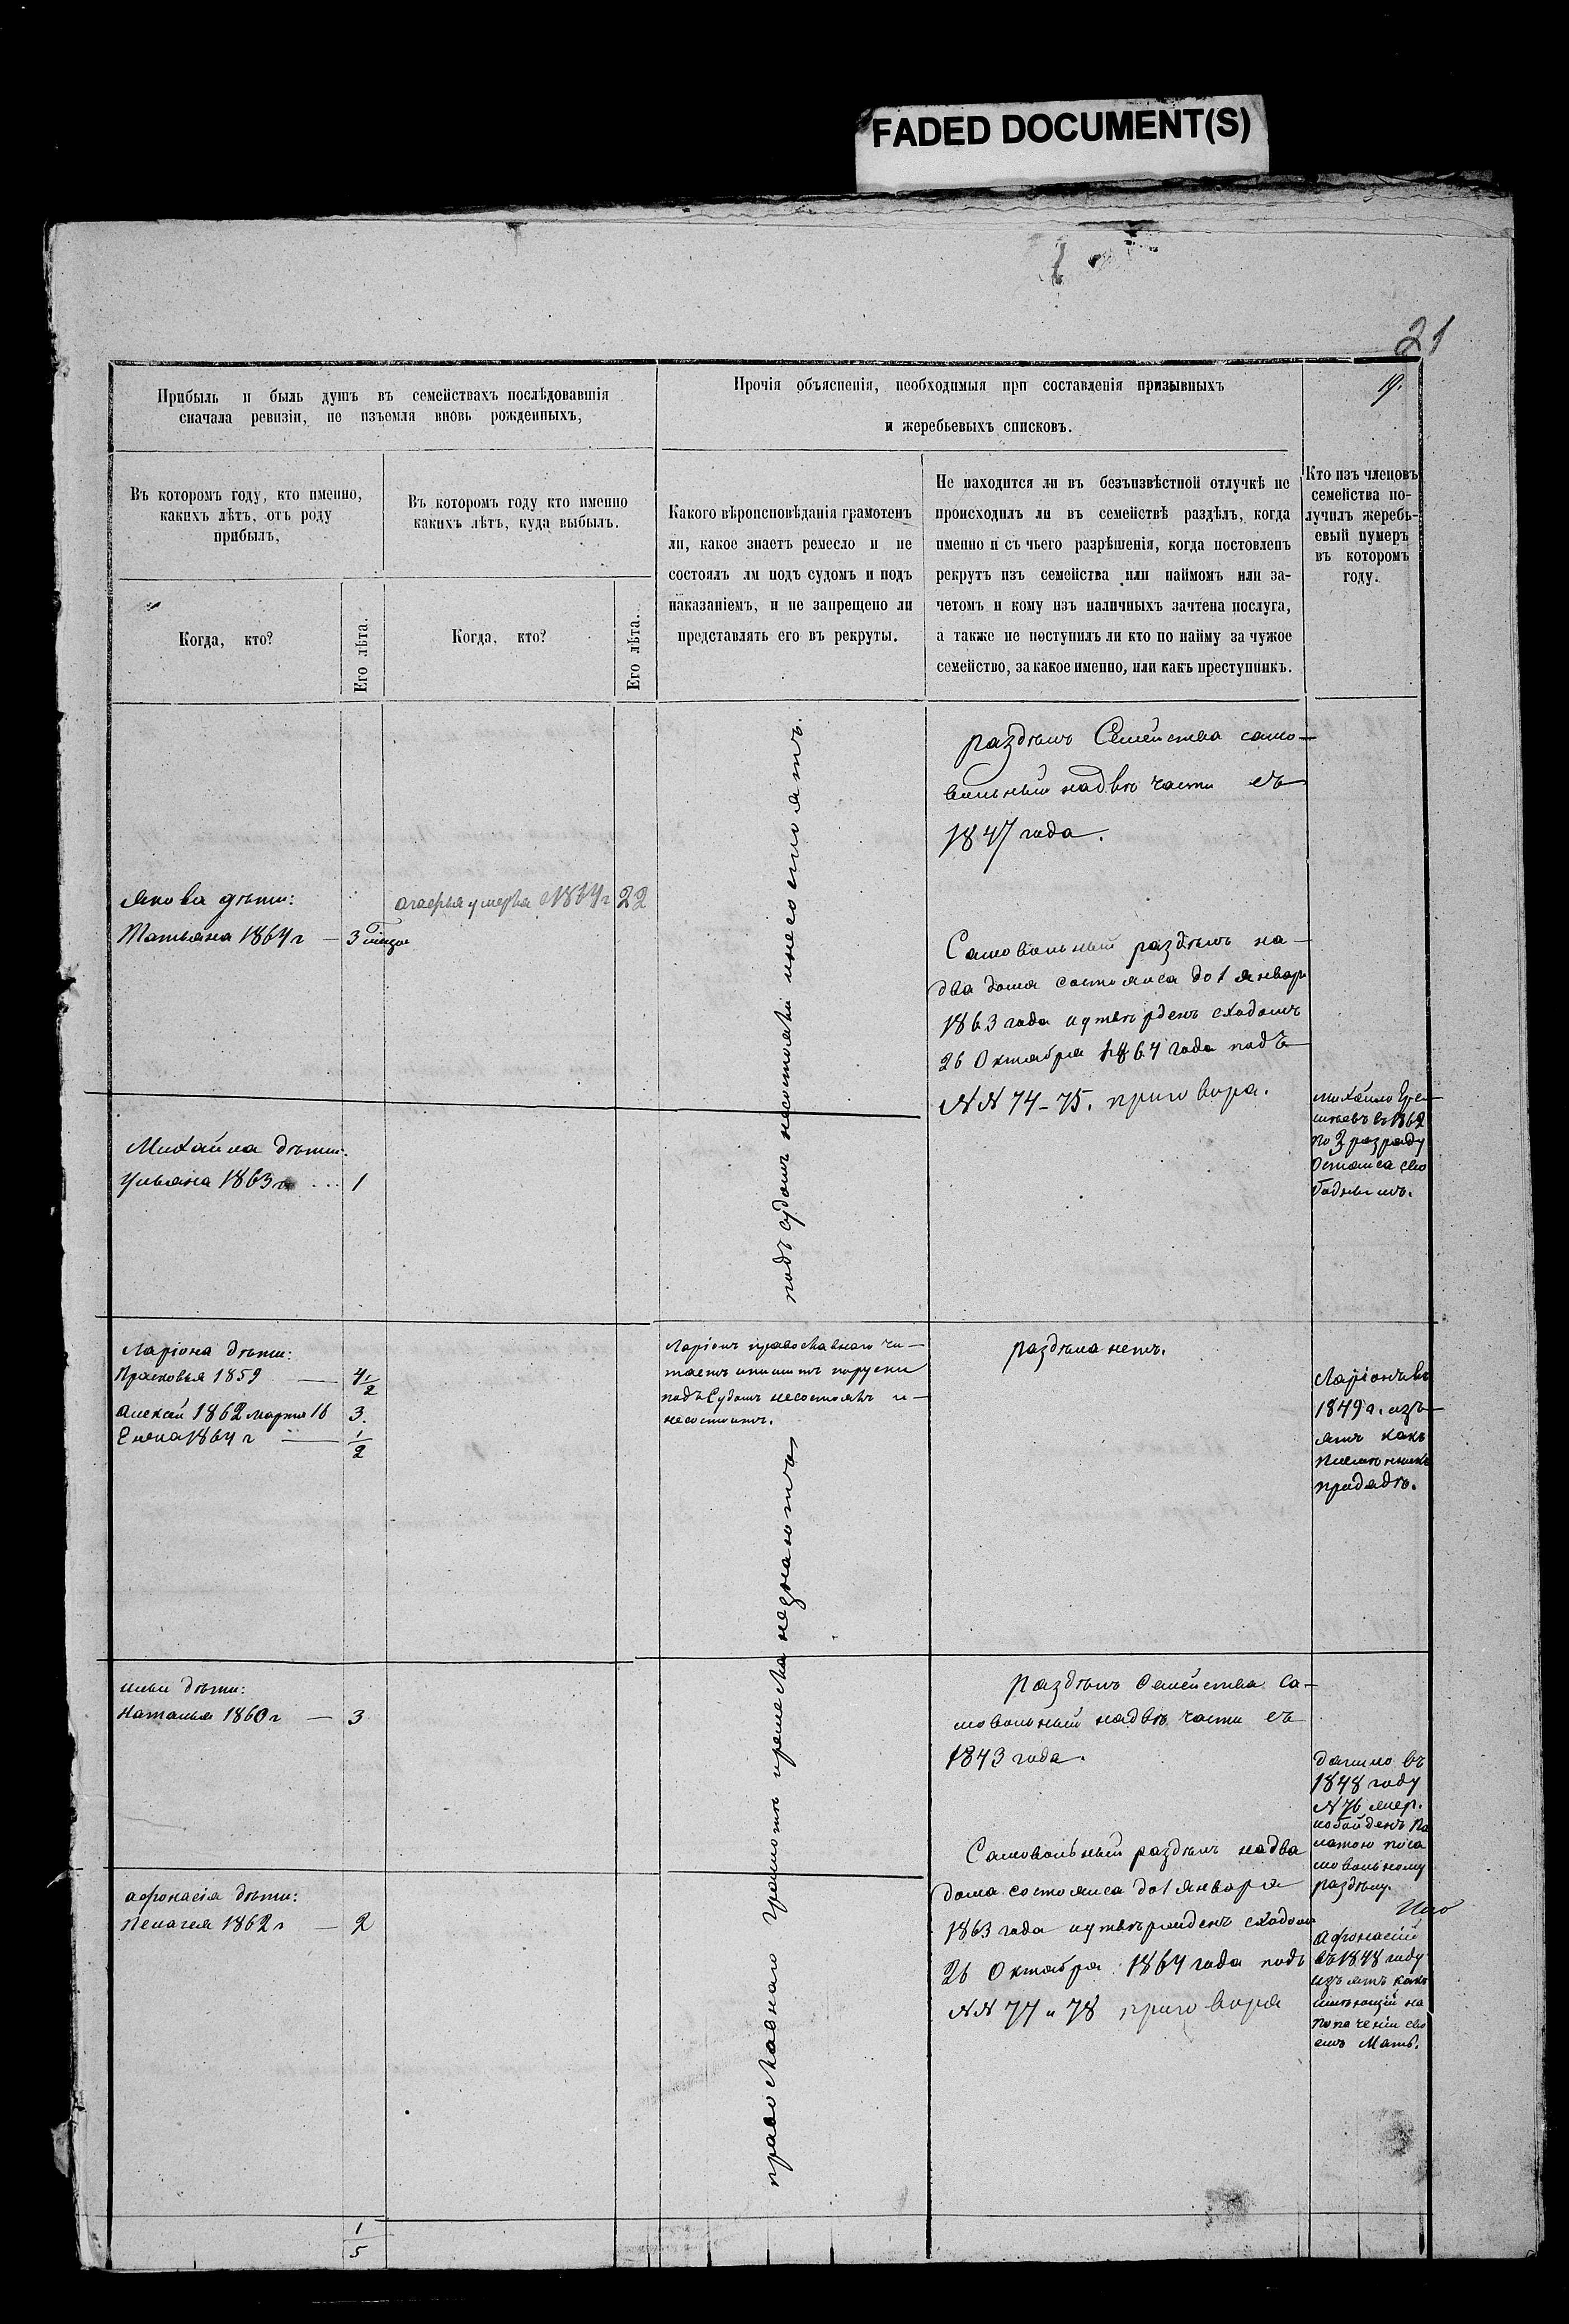 FADED DOCUMENT(S)
21
19.
Прибыль и быль душъ въ семействахъ послѣдовавшія
сначала ревизіи, не изъемля вновь рожденныхъ,
Въ которомъ году, кто именно,
какихъ лѣтъ, отъ роду
прибылъ,
Въ которомъ году кто именно
какихъ лѣтъ, куда выбылъ.
Когда, кто?
Его лѣта.
Когда, кто?
Его лѣта.
Прочія объясненія, необходимыя при составленія призывныхъ
и жеребьевыхъ списковъ.
Какого вѣроисповѣданія грамотенъ
ли, какое знаетъ ремесло и не
состоялъ лм подъ судомъ и подъ
наказаніемъ, и не запрещено ли
представлять его въ рекруты.
Не находится ли въ безъизвѣстной отлучкѣ не
происходилъ ли въ семействѣ раздѣлъ, когда
именно и съ чьего разрѣшенія, когда постовленъ
рекрутъ изъ семейства или наймомъ или за-
четомъ и кому изъ наличныхъ зачтена послуга,
а также не поступилъ ли кто по найму за чужое
семейство, за какое именно, или какъ преступникъ.
Кто изъ членовъ
семейства по-
лучилъ жеребь-
евый нумеръ
въ которомъ
году.
православнаго грамоты иремесла незнаютъ
подъ судомъ несостояли инесостоятъ.
раздѣлъ Семейства само-
вольный надвѣ части съ
1847 года.
Якова дѣти:
Татьяна 1864 г — 3
умерла 1864 г 22
Самовольный раздѣлъ на-
два дома состоялса до 1 январ
1863 года иутвѣрденъ сходомъ
26 Октября 1864 года подъ
NN 74-75. приговора.
Михайла дѣти:
Ульяна 1863 г ... 1
Михайло
въ 1862
по 3 разряду
Осталса сво
боднымъ.
Ларіона дѣти:
Прасковья 1859 — 4 1/2
Алексѣй 1862 Марта 16 3.
Елена 1864 г — 1/2
Ларіонъ православнаго чи-
таетъ ипишитъ поруски
подъ Судомъ несостоялъ и-
несостоитъ.
раздѣла нетъ.
Ларіонъ въ
1849 г. изъ-
ятъ какъ
племѣнникъ
придядѣ.
Ильи дѣти:
Наталья 1860 г — 3
Раздѣлъ Семейства са-
мовольный надвѣ части съ
1843 года.
въ
1848 году
N 76
обойденъ Па
латою поса
мовольному
раздѣлу.
Афонасія дѣти:
Пелагея 1862 г — 2
Самовольный раздѣлъ надва
дома состоялса до 1 Января
1863 года иутвѣржденъ сходомъ
26 Октября 1864 года подъ
NN 77 и 78 приговора
Афонасій
въ 1848 году
изъятъ какъ
имѣющій на
попаченіи сво
емъ Мать.
1/5